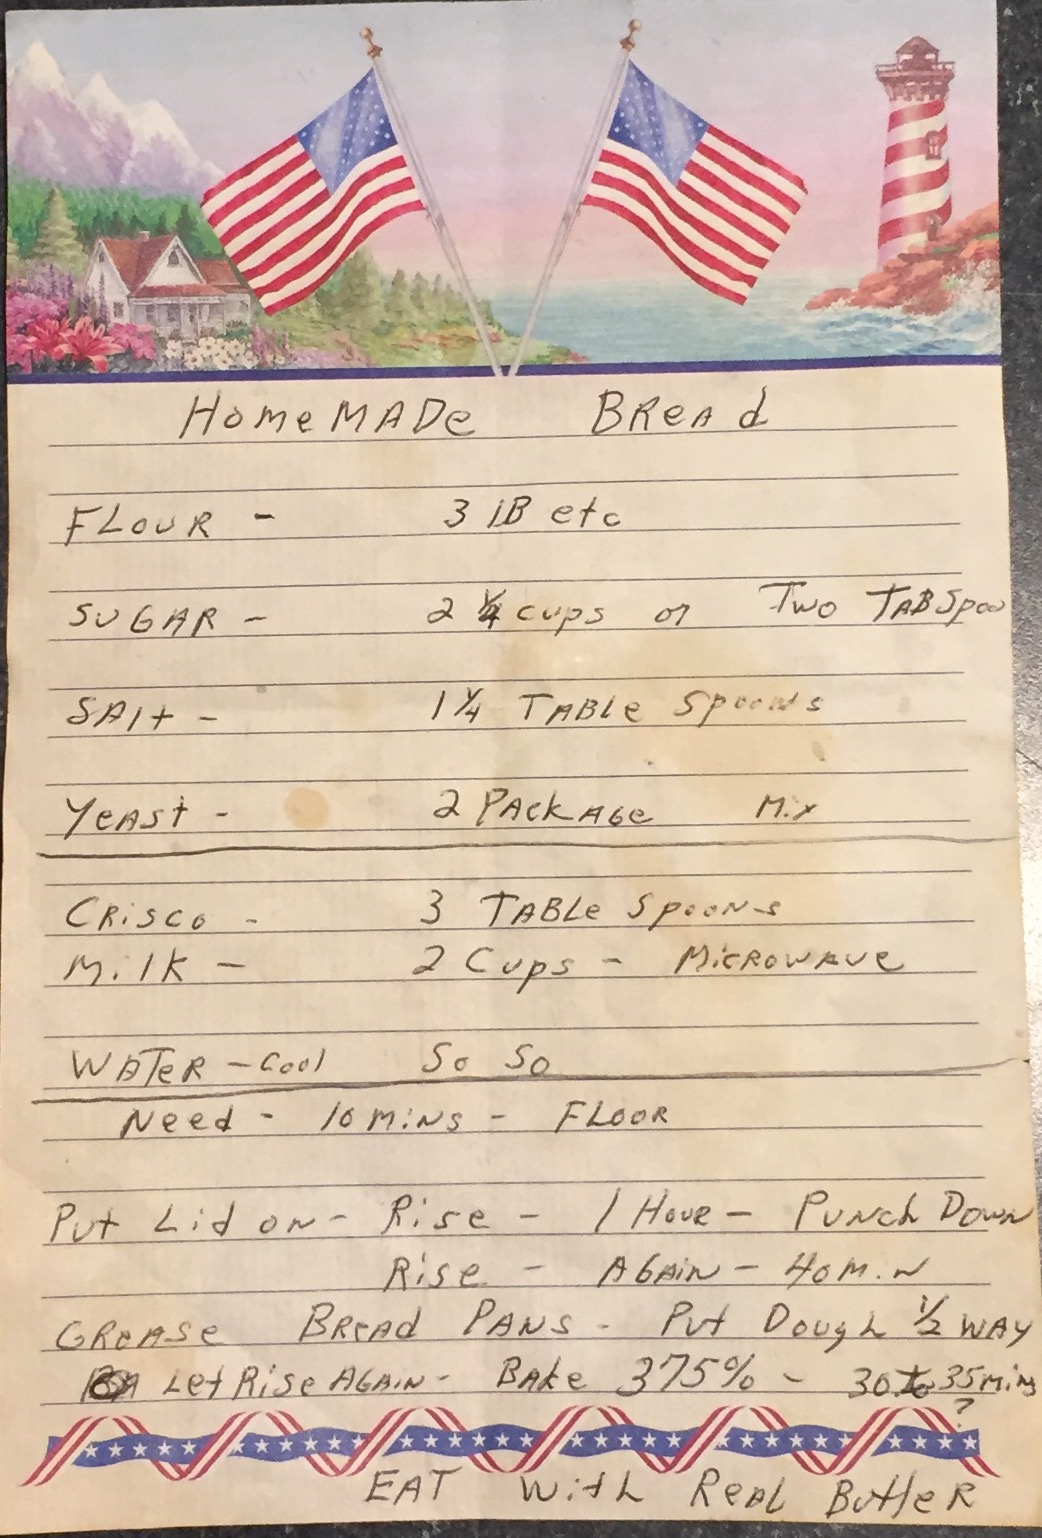 HomeMADe BReAd
FLOUR - 3 lB etc
SUGAR - 2 ¼ cups or Two TABSpoo
SAlt - 1 ¼ TABle Spoons
YeAst - 2 PAckAGe Mix
CRisco - 3 TABle Spoons
Milk - 2 Cups - MicRowAve
WATeR - Cool So So
Need - 10 MiNs - FLOOR
Put Lid on - Rise - 1 Houe - PuNch DowN
Rise - AGAiN - 40 MiN
GReAse BReAd PANS - Put Dough ½ WAY
Let Rise AGAiN - BAke 375% - 30 to 35 miNs
?
EAT With ReAl ButteR